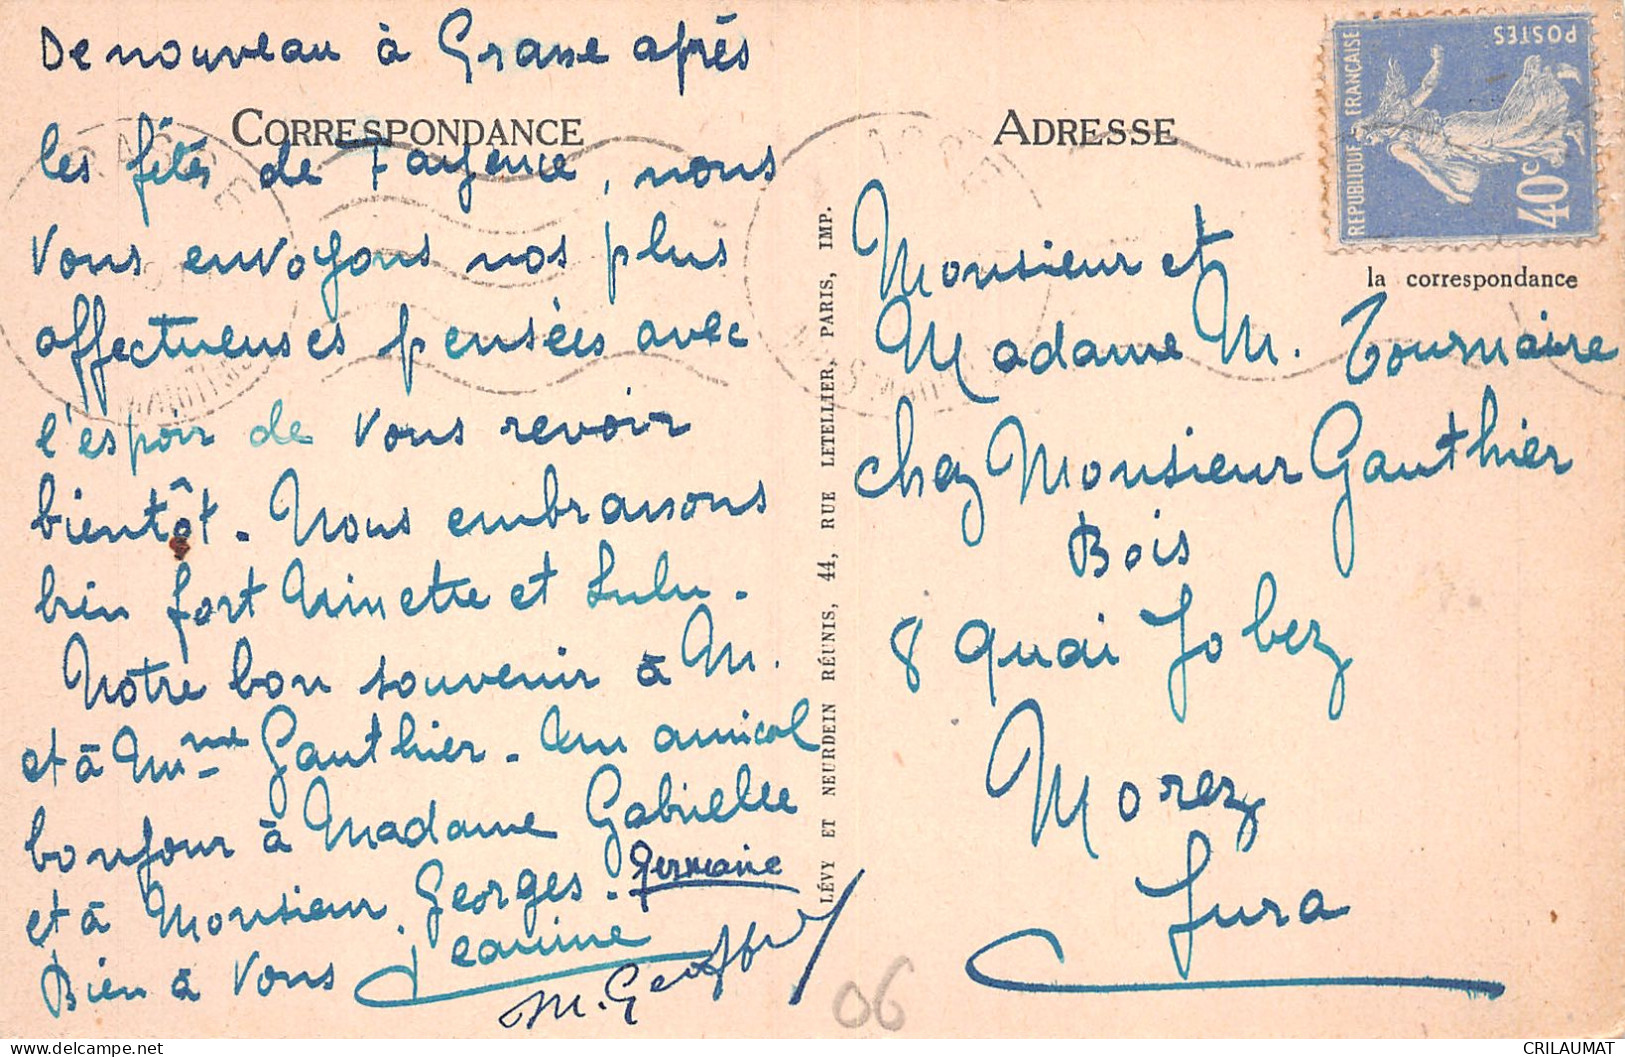 De nouveau à Grasse après
CORRESPONDANCE
les fêtes de Fayence, nous
vous envoyons nos plus
affectueuses pensées avec
l'espoir de vous revoir
bientôt. Nous embrassons
bien fort Ninette et Lulu.
Notre bon souvenir à M.
et à Mme Gauthier. Un amical
bonjour à Madame Gabrielle
et à Monsieur Georges. Germaine
Bien à vous Jeanine
M. Geoffroy
LÉVY ET NEURDEIN RÉUNIS, 44, RUE LETELLIER, PARIS, IMP.
ADRESSE
REPUBLIQUE FRANÇAISE
POSTES
40c
la correspondance
Monsieur et
Madame M. Tournaire
chez Monsieur Gauthier
Bois
8 quai Jobez
Morez
Jura
06
delcampe.net
CRILAUMAT